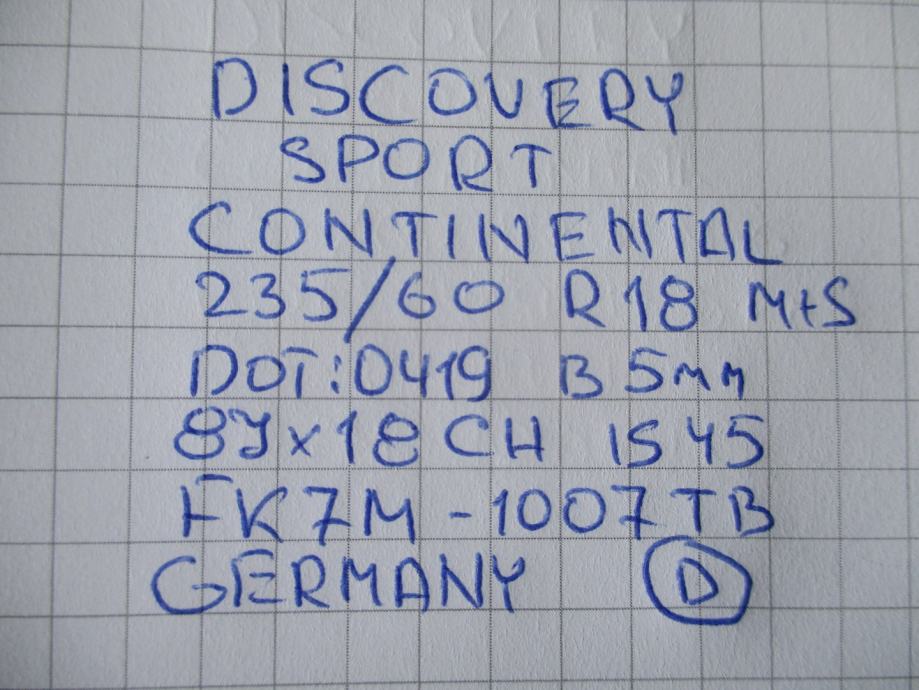 DISCOVERY
SPORT
CONTINENTAL
235/60 R18 M+S
DOT:0419 B 5mm
8Jx18 CH IS 45
FK7M-1007TB
GERMANY D